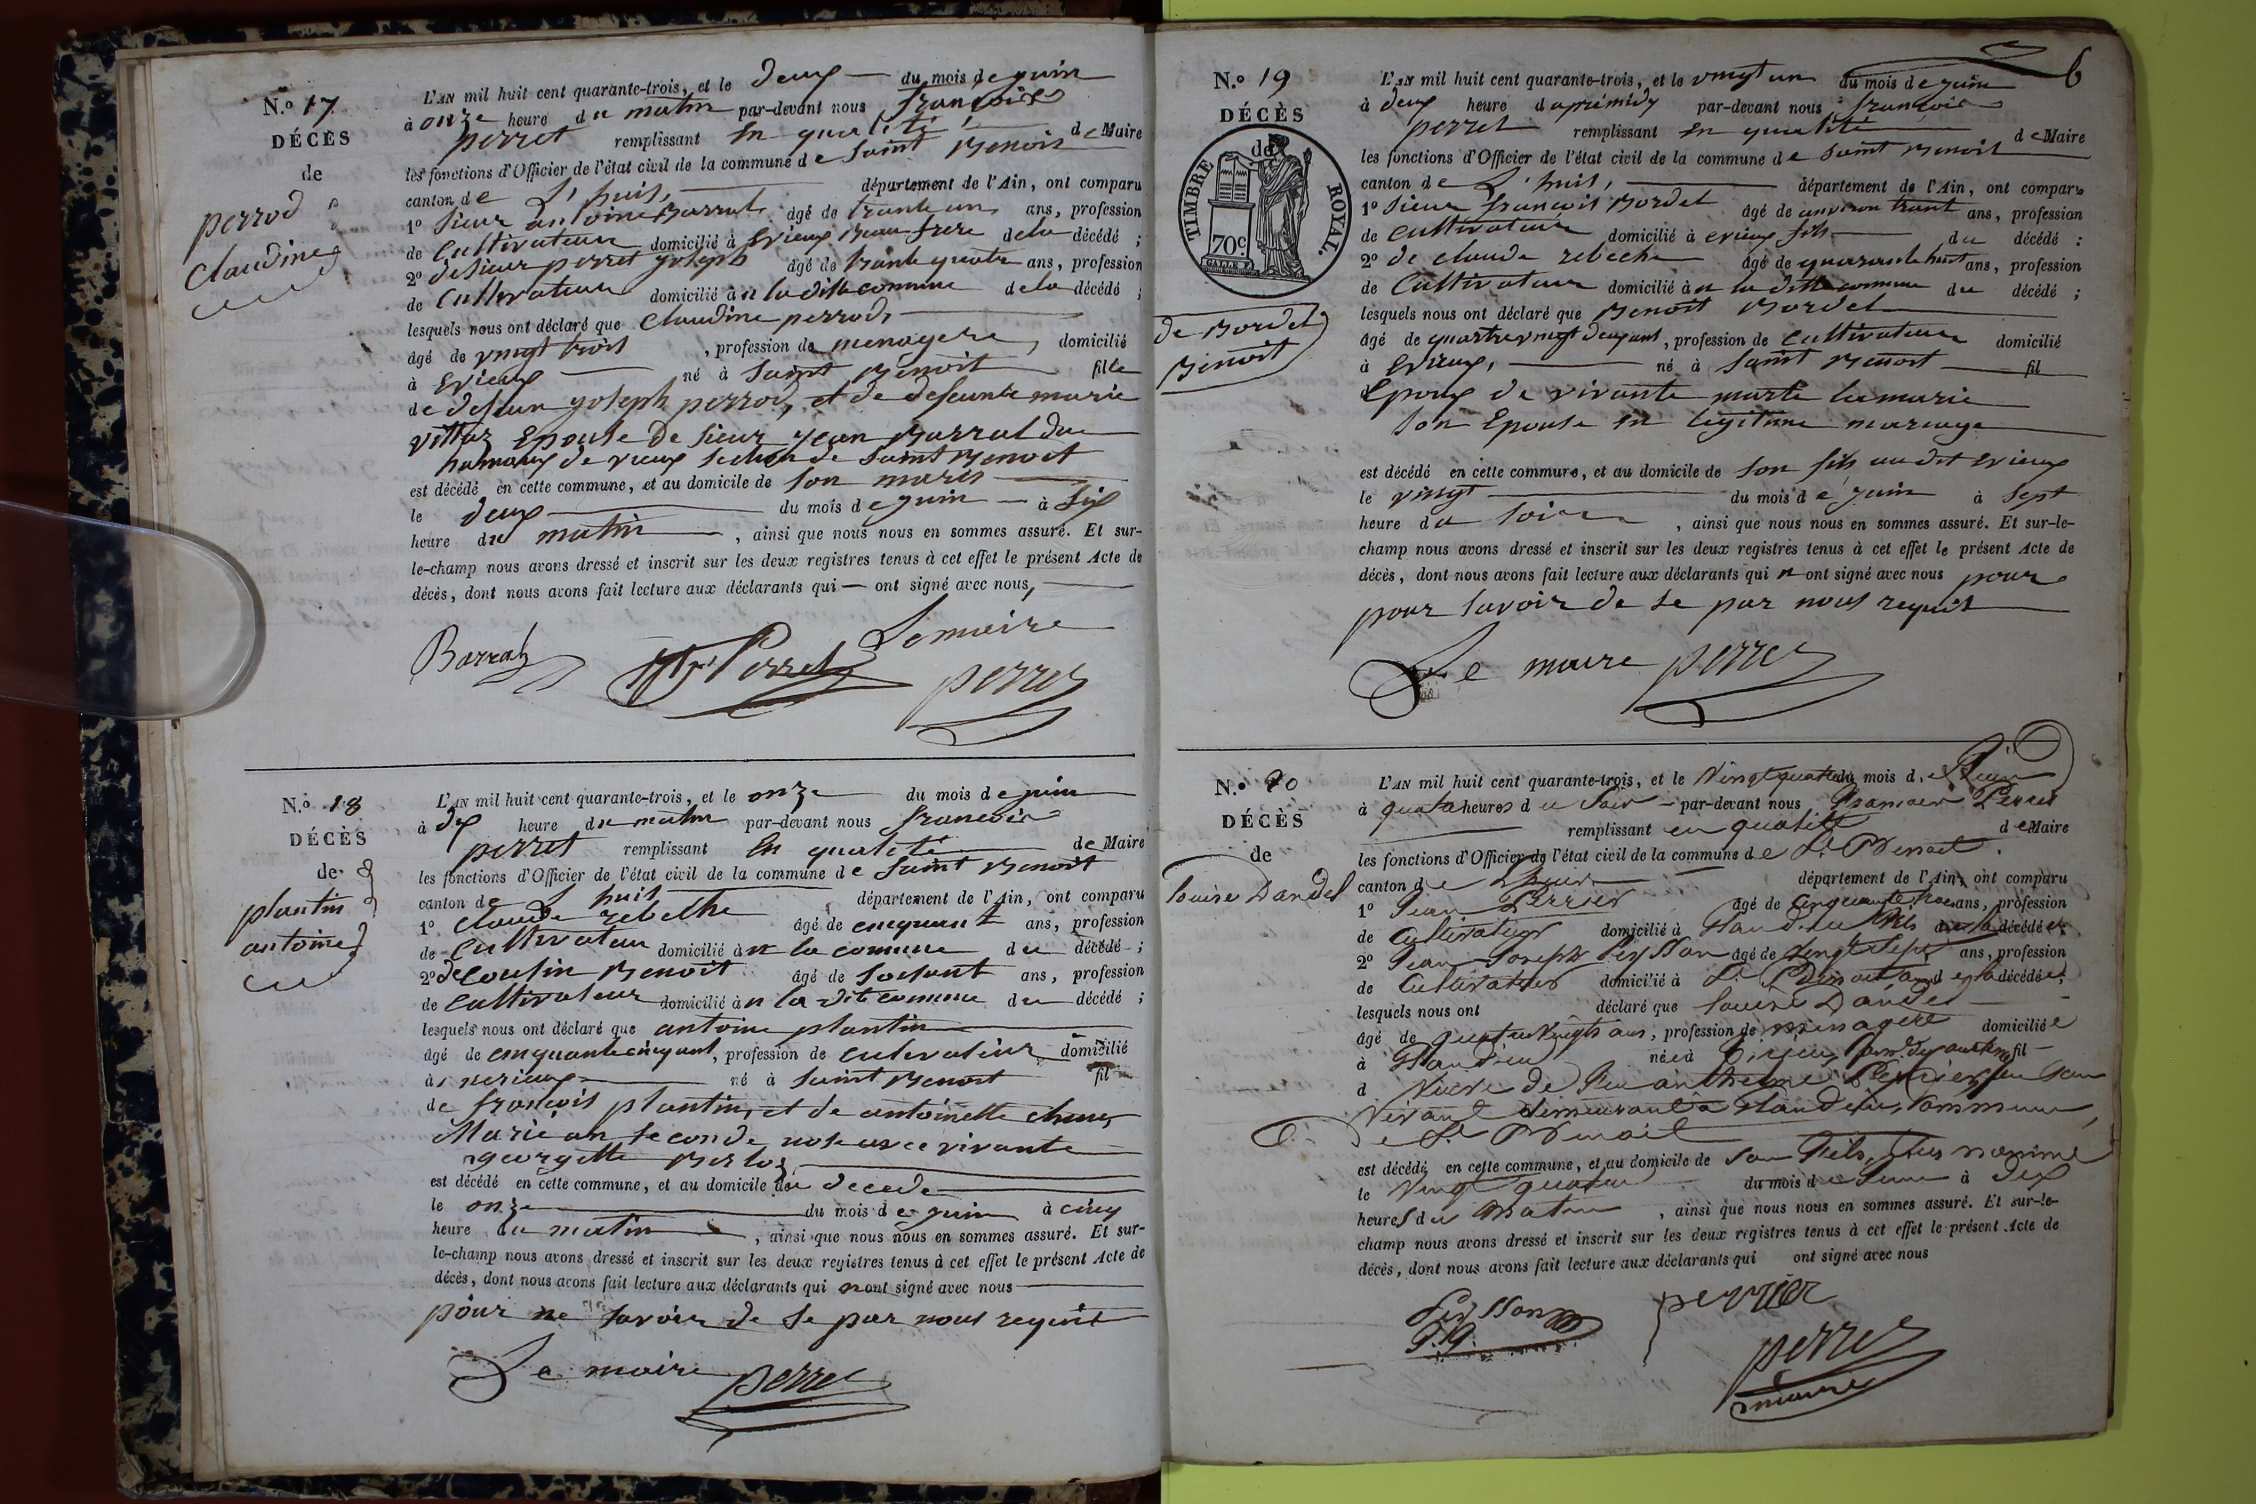 N.º 17.
DÉCÈS
de
perrod
Claudine
L'AN mil huit cent quarante-trois, et le deux du mois de juin
à onze heure du matin par-devant nous françois
perret remplissant en qualité de Maire
les fonctions d'Officier de l'état civil de la commune de saint Benoit
canton de L'huis, département de l'Ain, ont comparu
1º Sieur antoine Barral âgé de trante un ans, profession
de Cultivateur domicilié à Evieux Beau frere dela décédé ;
2º de Sieur perret joseph âgé de trante quatre ans, profession
de Cultivateur domicilié à n la ditte commune dela décédé ;
lesquels nous ont déclaré que Claudine perrod,
âgé de vingt trois , profession de menagere, domicilié
à Evieux né à Saint Benoit fille
de defeun joseph perrod, et de defeunte marie
vittoz Epouse de sieur jean Barral du
hamaux de vieux section de Saint Benoit
est décédé en cette commune, et au domicile de son maris
le deux du mois de juin à Six
heure du matin , ainsi que nous nous en sommes assuré. Et sur-
le-champ nous avons dressé et inscrit sur les deux registres tenus à cet effet le présent Acte de
décès, dont nous avons fait lecture aux déclarants qui — ont signé avec nous,
Barral Perret Le maire
perret
N.º 18
DÉCÈS
de
plantin
antoine
L'AN mil huit cent quarante-trois, et le onze du mois de juin
à dix heure du matin par-devant nous françois
perret remplissant En qualité de Maire
les fonctions d'Officier de l'état civil de la commune de Saint Benoit
canton de L'huis département de l'Ain, ont comparu
1º Claude rebethe âgé de cinquant ans, profession
de Cultivateur domicilié à n la comune du décédé ;
2º de cousin Benoit âgé de soisant ans, profession
de Cultivateur domicilié à n la dite commune du décédé ;
lesquels nous ont déclaré que antoine plantin
âgé de cinquantecinqant, profession de cultivateur domicilié
à né à Saint Benoit fil
de françois plantin, et de antoinette
Marié an seconde nose avec vivante
georgette
est décédé en cette commune, et au domicile du decede
le onze du mois de juin à cinq
heure du matin , ainsi que nous nous en sommes assuré. Et sur-
le-champ nous avons dressé et inscrit sur les deux registres tenus à cet effet le présent Acte de
décès, dont nous avons fait lecture aux déclarants qui nont signé avec nous
pour ne savoir de se par nous requit
Le maire perret
6
N.º 19
DÉCÈS
de
TIMBRE ROYAL.
70c
de Bordel
Benoit
L'AN mil huit cent quarante-trois, et le vingt un du mois de juin
à deux heure daprémidy par-devant nous françois
perret remplissant en qualité de Maire
les fonctions d'Officier de l'état civil de la commune de saint Benoit
canton de L'huis, département de l'Ain, ont comparu
1º Sieur françois Bordel âgé de anviron trant ans, profession
de Cultivateur domicilié à evieux fils du décédé :
2º de claude rebethe âgé de quarante huit ans, profession
de Cultivateur domicilié à n la ditte commune du décédé ;
lesquels nous ont déclaré que Benoit Bordel
âgé de quatrevingt deuxant, profession de Cultivateur domicilié
à Evieux, né à Saint Benoit fil
Epoux de vivante
son Epouse en legitime mariage
est décédé en cette commune, et au domicile de son fils au dit Evieux
le vingt du mois de juin à sept
heure du soir , ainsi que nous nous en sommes assuré. Et sur-le-
champ nous avons dressé et inscrit sur les deux registres tenus à cet effet le présent Acte de
décès, dont nous avons fait lecture aux déclarants qui n ont signé avec nous pour
pour savoir de se par nous requit
Le maire perret
N.º 20
DÉCÈS
de
Louise Dandel
L'AN mil huit cent quarante-trois, et le Vingtquatre du mois de Juin
à quatre heures du Soir par-devant nous François Perret
remplissant en qualité de Maire
les fonctions d'Officier de l'état civil de la commune de St Benoit.
canton de Lhuis département de l'Ain, ont comparu
1º Jean Perrier âgé de Cinquante trois ans, profession
de Cultivateur domicilié à Glandieu fils de la décédée;
2º Jean Joseph Peysson âgé de Vingt Sept ans, profession
de Cultivateur domicilié à St Benoit de la décédée;
lesquels nous ont déclaré que Louise Dandel
âgé de quatrevingts ans, profession de ménagère domiciliée
à Glandieu née à fil
d Veuve de feu anthelme Perrier en son
Vivant demeurant à Glandieu, Commune
de St Benoit
est décédé en cette commune, et au domicile de son fils, sus nommé
le Vingt quatre du mois de Juin à dix
heures du Matin , ainsi que nous nous en sommes assuré. Et sur-le-
champ nous avons dressé et inscrit sur les deux registres tenus à cet effet le présent Acte de
décès, dont nous avons fait lecture aux déclarants qui ont signé avec nous
Peysson perrier
perret
maire